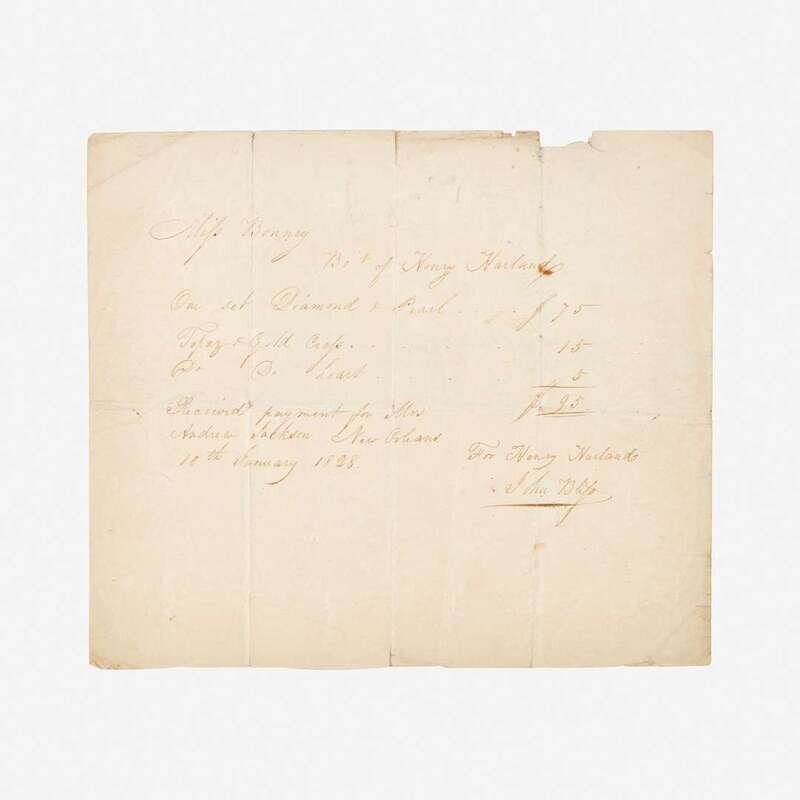 Miſs Bonney
Bot of Henry Harland
One set Diamond & Pearl . . . . $ 75
Topaz & Gold Croſs . . . . . 15
Do Do heart . . . . 5
$ 95
Received payment for Mrs
Andrew Jackson New Orleans
10th January 1828.
For Henry Harland
John Bliſs